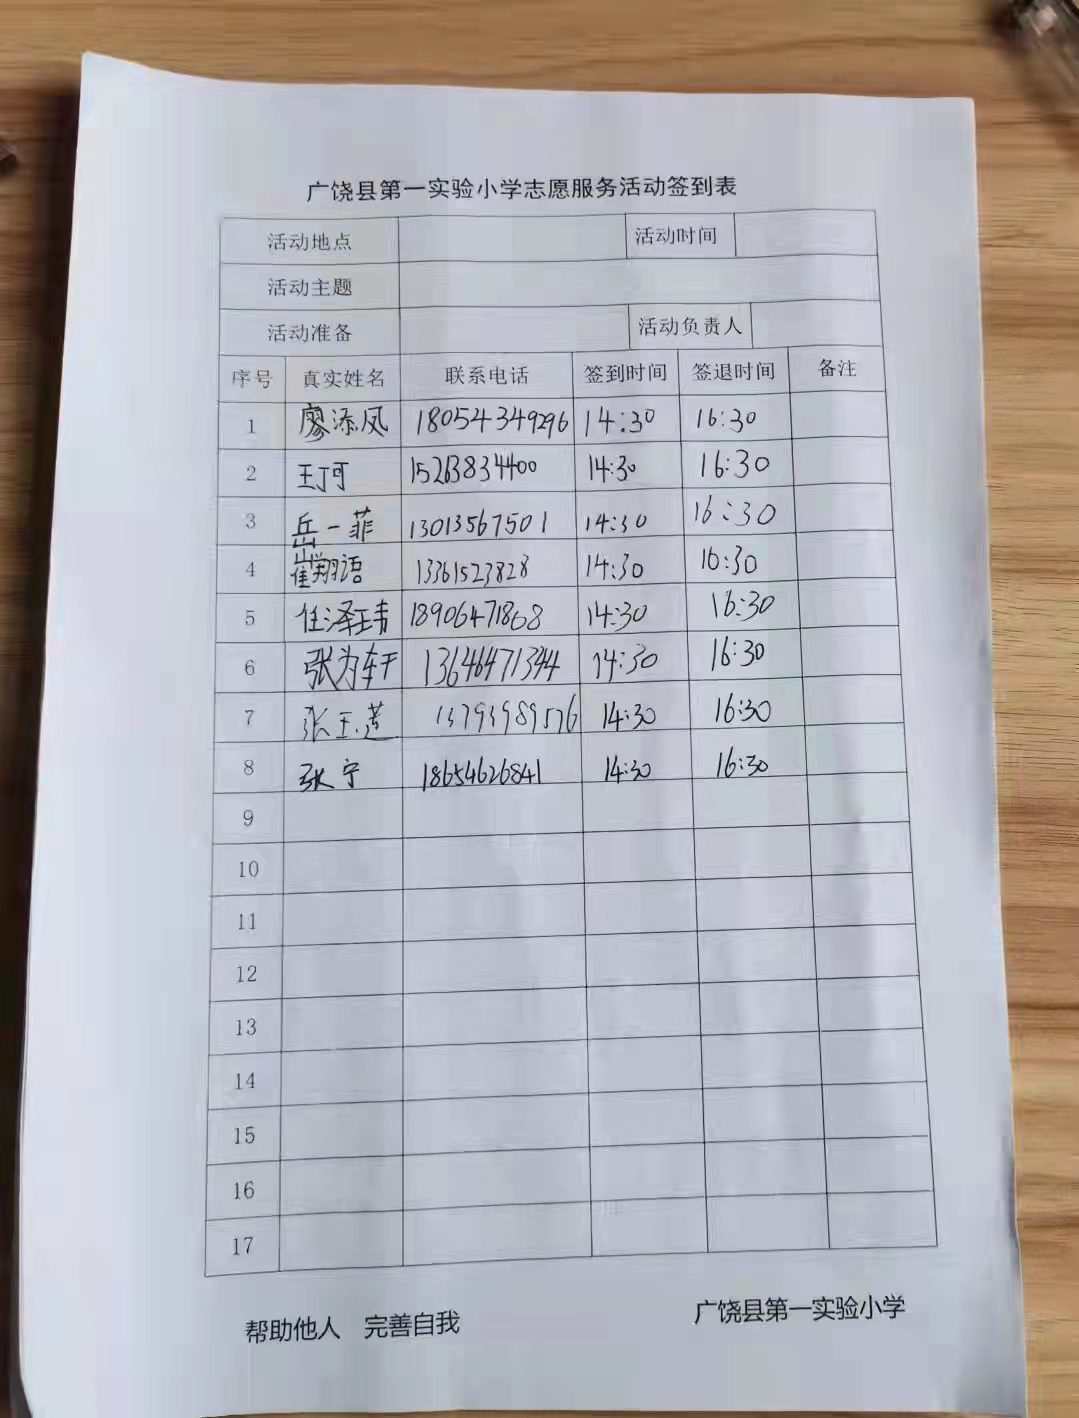 广饶县第一实验小学志愿服务活动签到表
活动地点 活动时间
活动主题
活动准备 活动负责人
序号 真实姓名 联系电话 签到时间 签退时间 备注
1 廖添凤 18054349296 14:30 16:30
2 王可 15263834400 14:30 16:30
3 岳一菲 13013567501 14:30 16:30
4 崔翔语 13361523828 14:30 16:30
5 任泽 18906471868 14:30 16:30
6 张为轩 13646471344 14:30 16:30
7 张玉莲 13793989576 14:30 16:30
8 张宁 18654626841 14:30 16:30
9
10
11
12
13
14
15
16
17
帮助他人 完善自我 广饶县第一实验小学